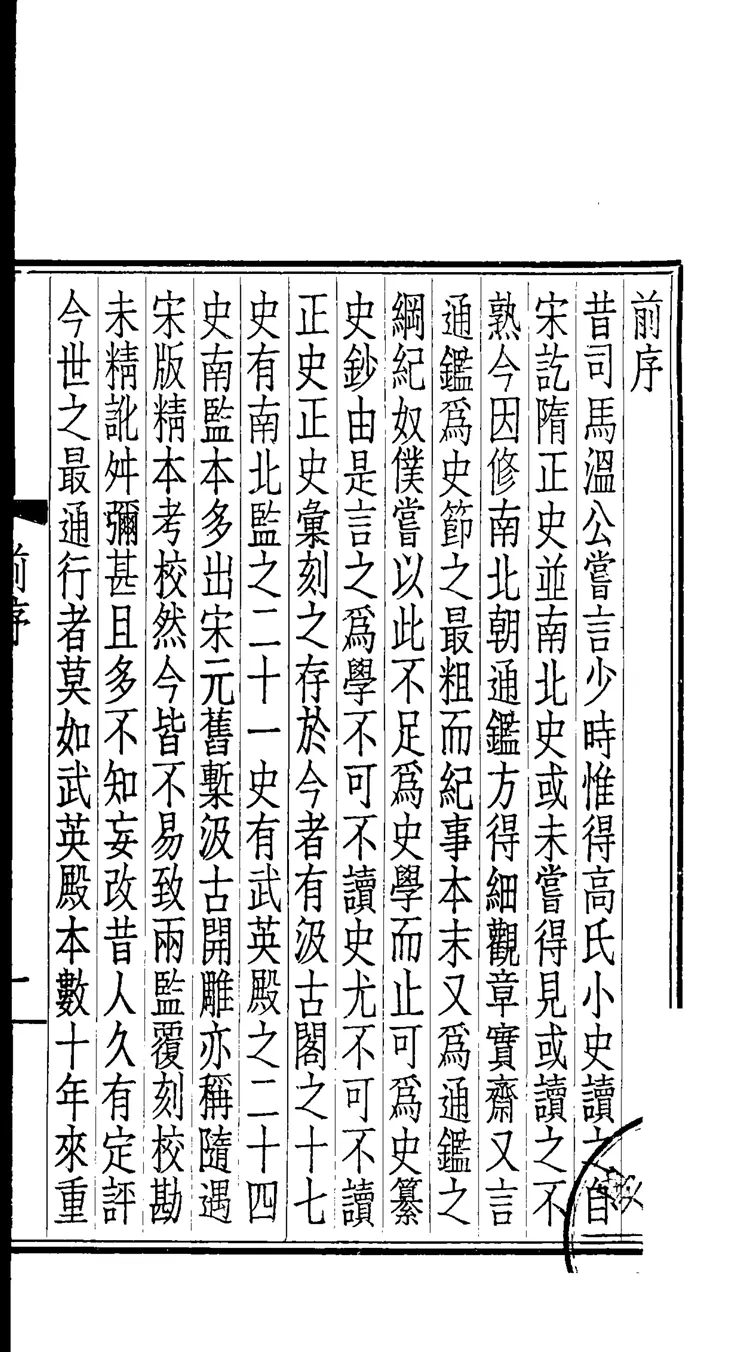 前序
昔司馬溫公嘗言少時惟得高氏小史讀之自
宋訖隋正史並南北史或未嘗得見或讀之不
熟今因修南北朝通鑑方得細觀章實齋又言
通鑑爲史節之最粗而紀事本末又爲通鑑之
綱紀奴僕嘗以此不足爲史學而止可爲史纂
史鈔由是言之爲學不可不讀史尤不可不讀
正史正史彙刻之存於今者有汲古閣之十七
史有南北監之二十一史有武英殿之二十四
史南監本多出宋元舊槧汲古開雕亦稱隨遇
宋版精本考校然今皆不易致兩監覆刻校勘
未精訛舛彌甚且多不知妄改昔人久有定評
今世之最通行者莫如武英殿本數十年來重
前序
一